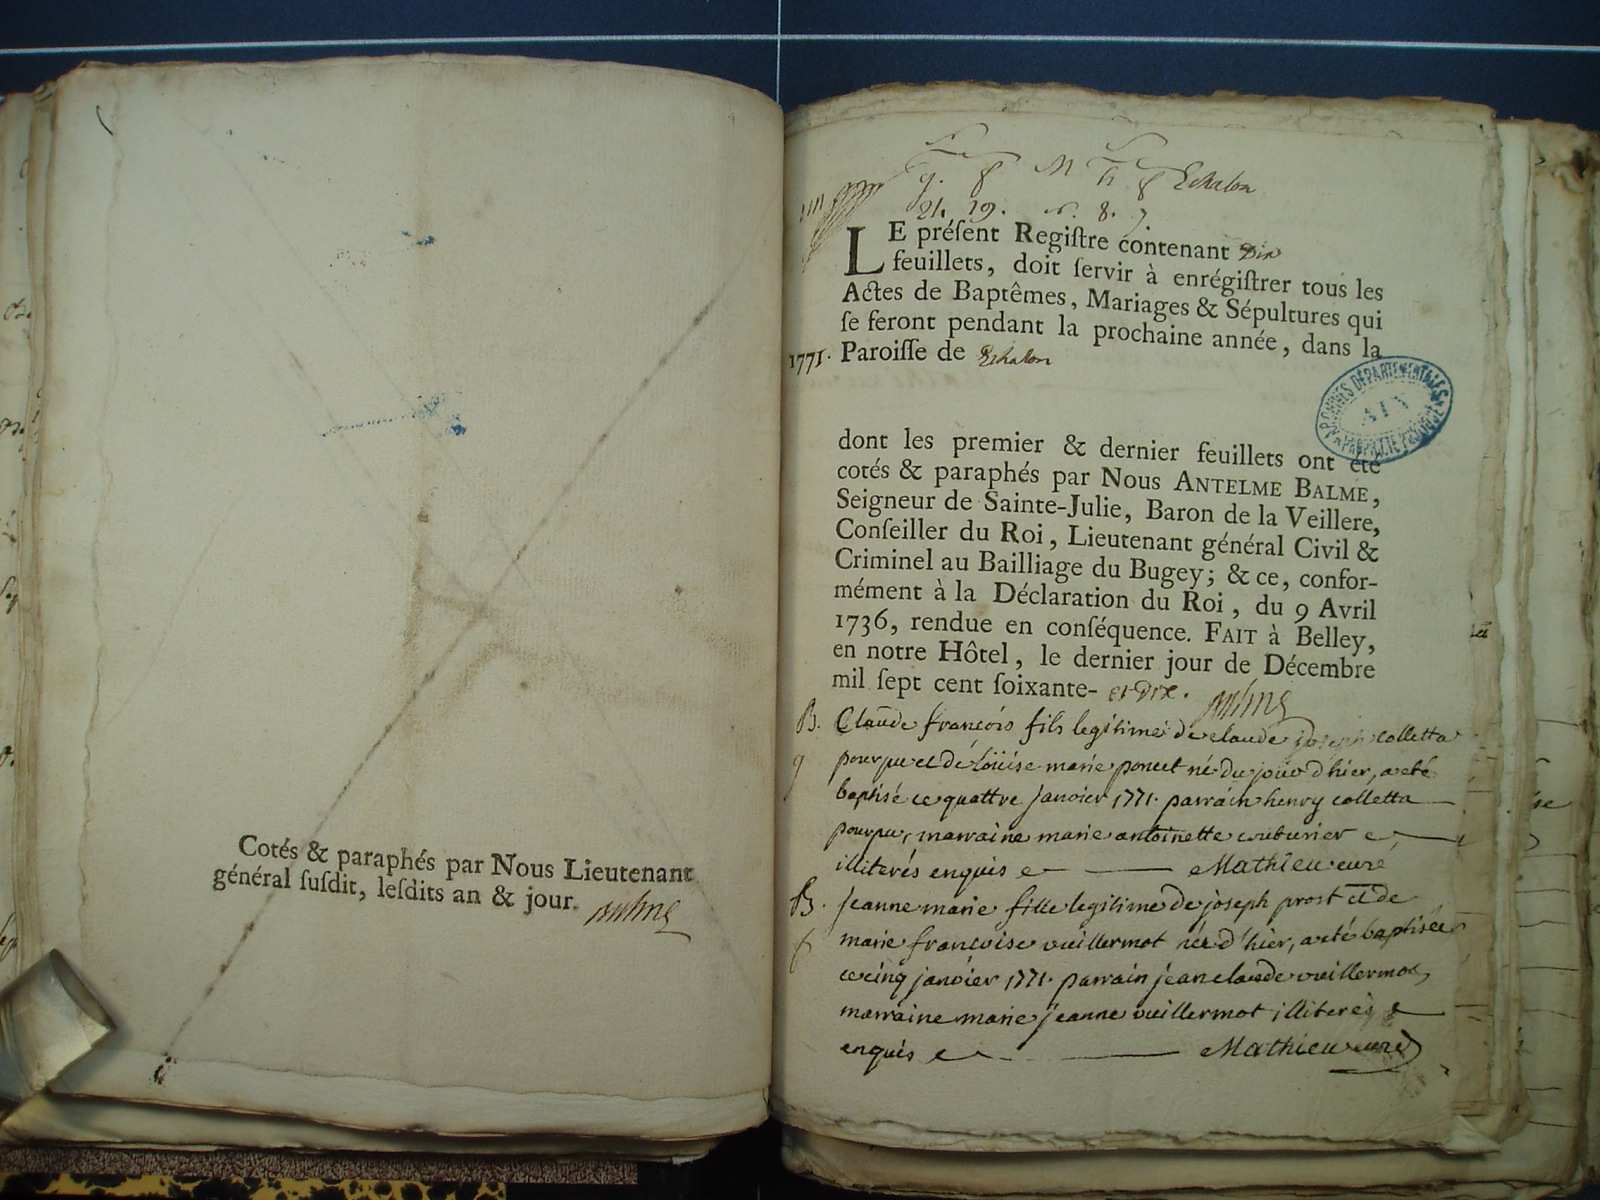 Cotés & paraphés par Nous Lieutenant
général susdit, lesdits an & jour.
Echalon
21. 19. 8.
LE présent Registre contenant Dix
feuillets, doit servir à enrégistrer tous les
Actes de Baptêmes, Mariages & Sépultures qui
se feront pendant la prochaine année, dans la
1771. Paroisse de Echalon
ARCHIVES DÉPARTEMENTALES
AIN
dont les premier & dernier feuillets ont été
cotés & paraphés par Nous ANTELME BALME,
Seigneur de Sainte-Julie, Baron de la Veillere,
Conseiller du Roi, Lieutenant général Civil &
Criminel au Bailliage du Bugey; & ce, confor-
mément à la Déclaration du Roi, du 9 Avril
1736, rendue en conséquence. FAIT à Belley,
en notre Hôtel, le dernier jour de Décembre
mil sept cent soixante- et dix.
B. Claude françois fils legitime de claude joseph colletta
g pourpu et de loüise marie poncet né du jour d'hier, a eté
baptisé ce quattre janvier 1771. parrain henry colletta
pourpu, marraine marie antoinette couturier
illiterés enquis Mathieu curé
B. jeanne marie fille legitime de joseph prost et de
f marie françoise vuillermot née d'hier, a eté baptisée
ce cinq janvier 1771. parrain jean claude vuillermot,
marraine marie jeanne vuillermot illiterés
enquis Mathieu curé